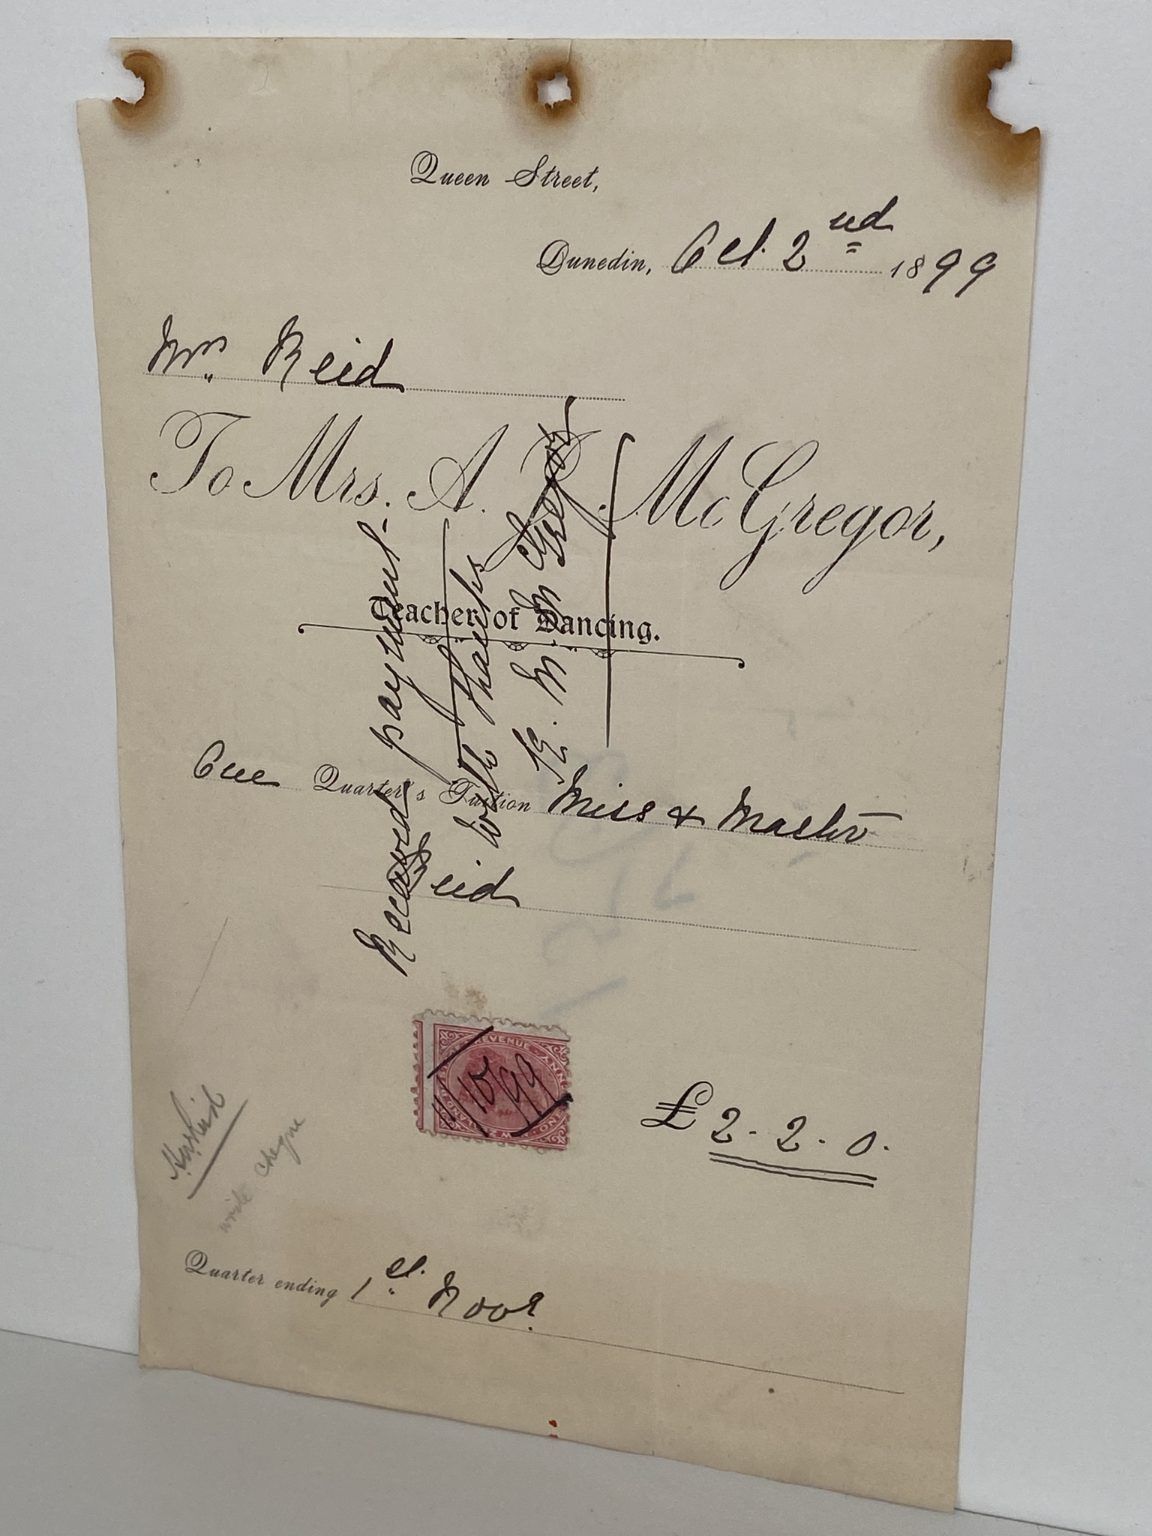 Queen Street,
Dunedin, Oct. 2nd 1899
Mrs Reid
To Mrs. A. R. McGregor,
Teacher of Dancing.
One Quarter's Tuition Miss & Master
Reid
Received payment
with thanks
McGregor
REVENUE
11/10/99
£2. 2. 0.
write cheque
Quarter ending 1st Novr.